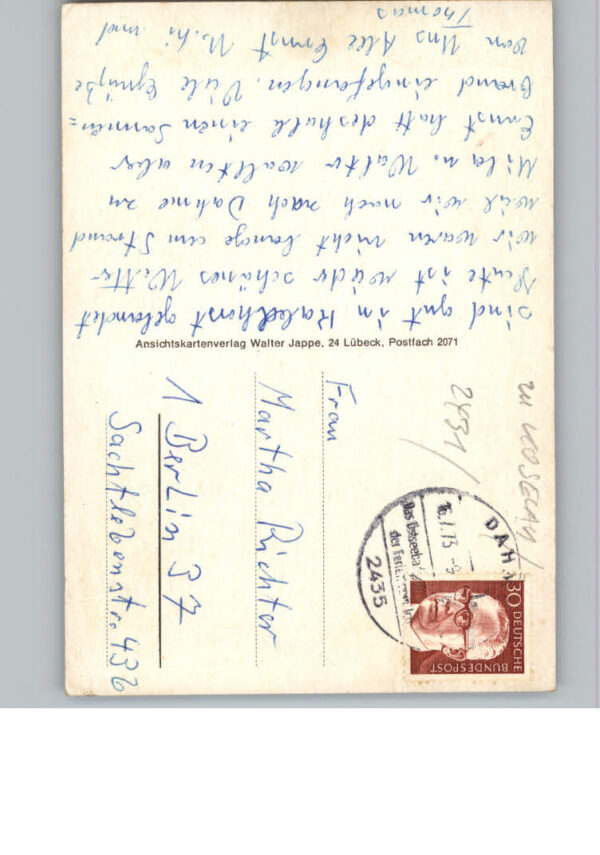 sind gut in gelandet
Heute ist wieder schönes Wetter
wir waren nicht lange am Strand
weil wir noch nach Dahme zu
u. Walter wollten aber
Ernst hatt deshalb einen Sonnen=
brand eingefangen. Viele Grüße
von Uns Alle Ernst und
Thomas
Ansichtskartenverlag Walter Jappe, 24 Lübeck, Postfach 2071
Frau
Martha Richter
1 Berlin 37
Sachtlebenstr. 43b
2431
zu KOSELAU
DAHM
16.7.73
Das Ostseebad
der Ferien
2435
30 DEUTSCHE
BUNDESPOST